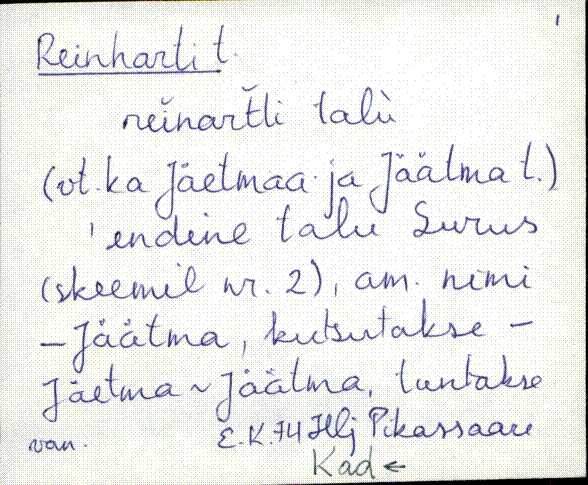 Reinharti t.
rĕinarťli talù
(vt. ka Jäetmaa ja Jäätma t.)
'endine talu Surus
(skeemil nr. 2), am. nimi
– Jäätma, kutsutakse –
Jäetma ~ Jäätma, tuntakse
van. E.K.74 Hlj Pikassaare
Kad ←